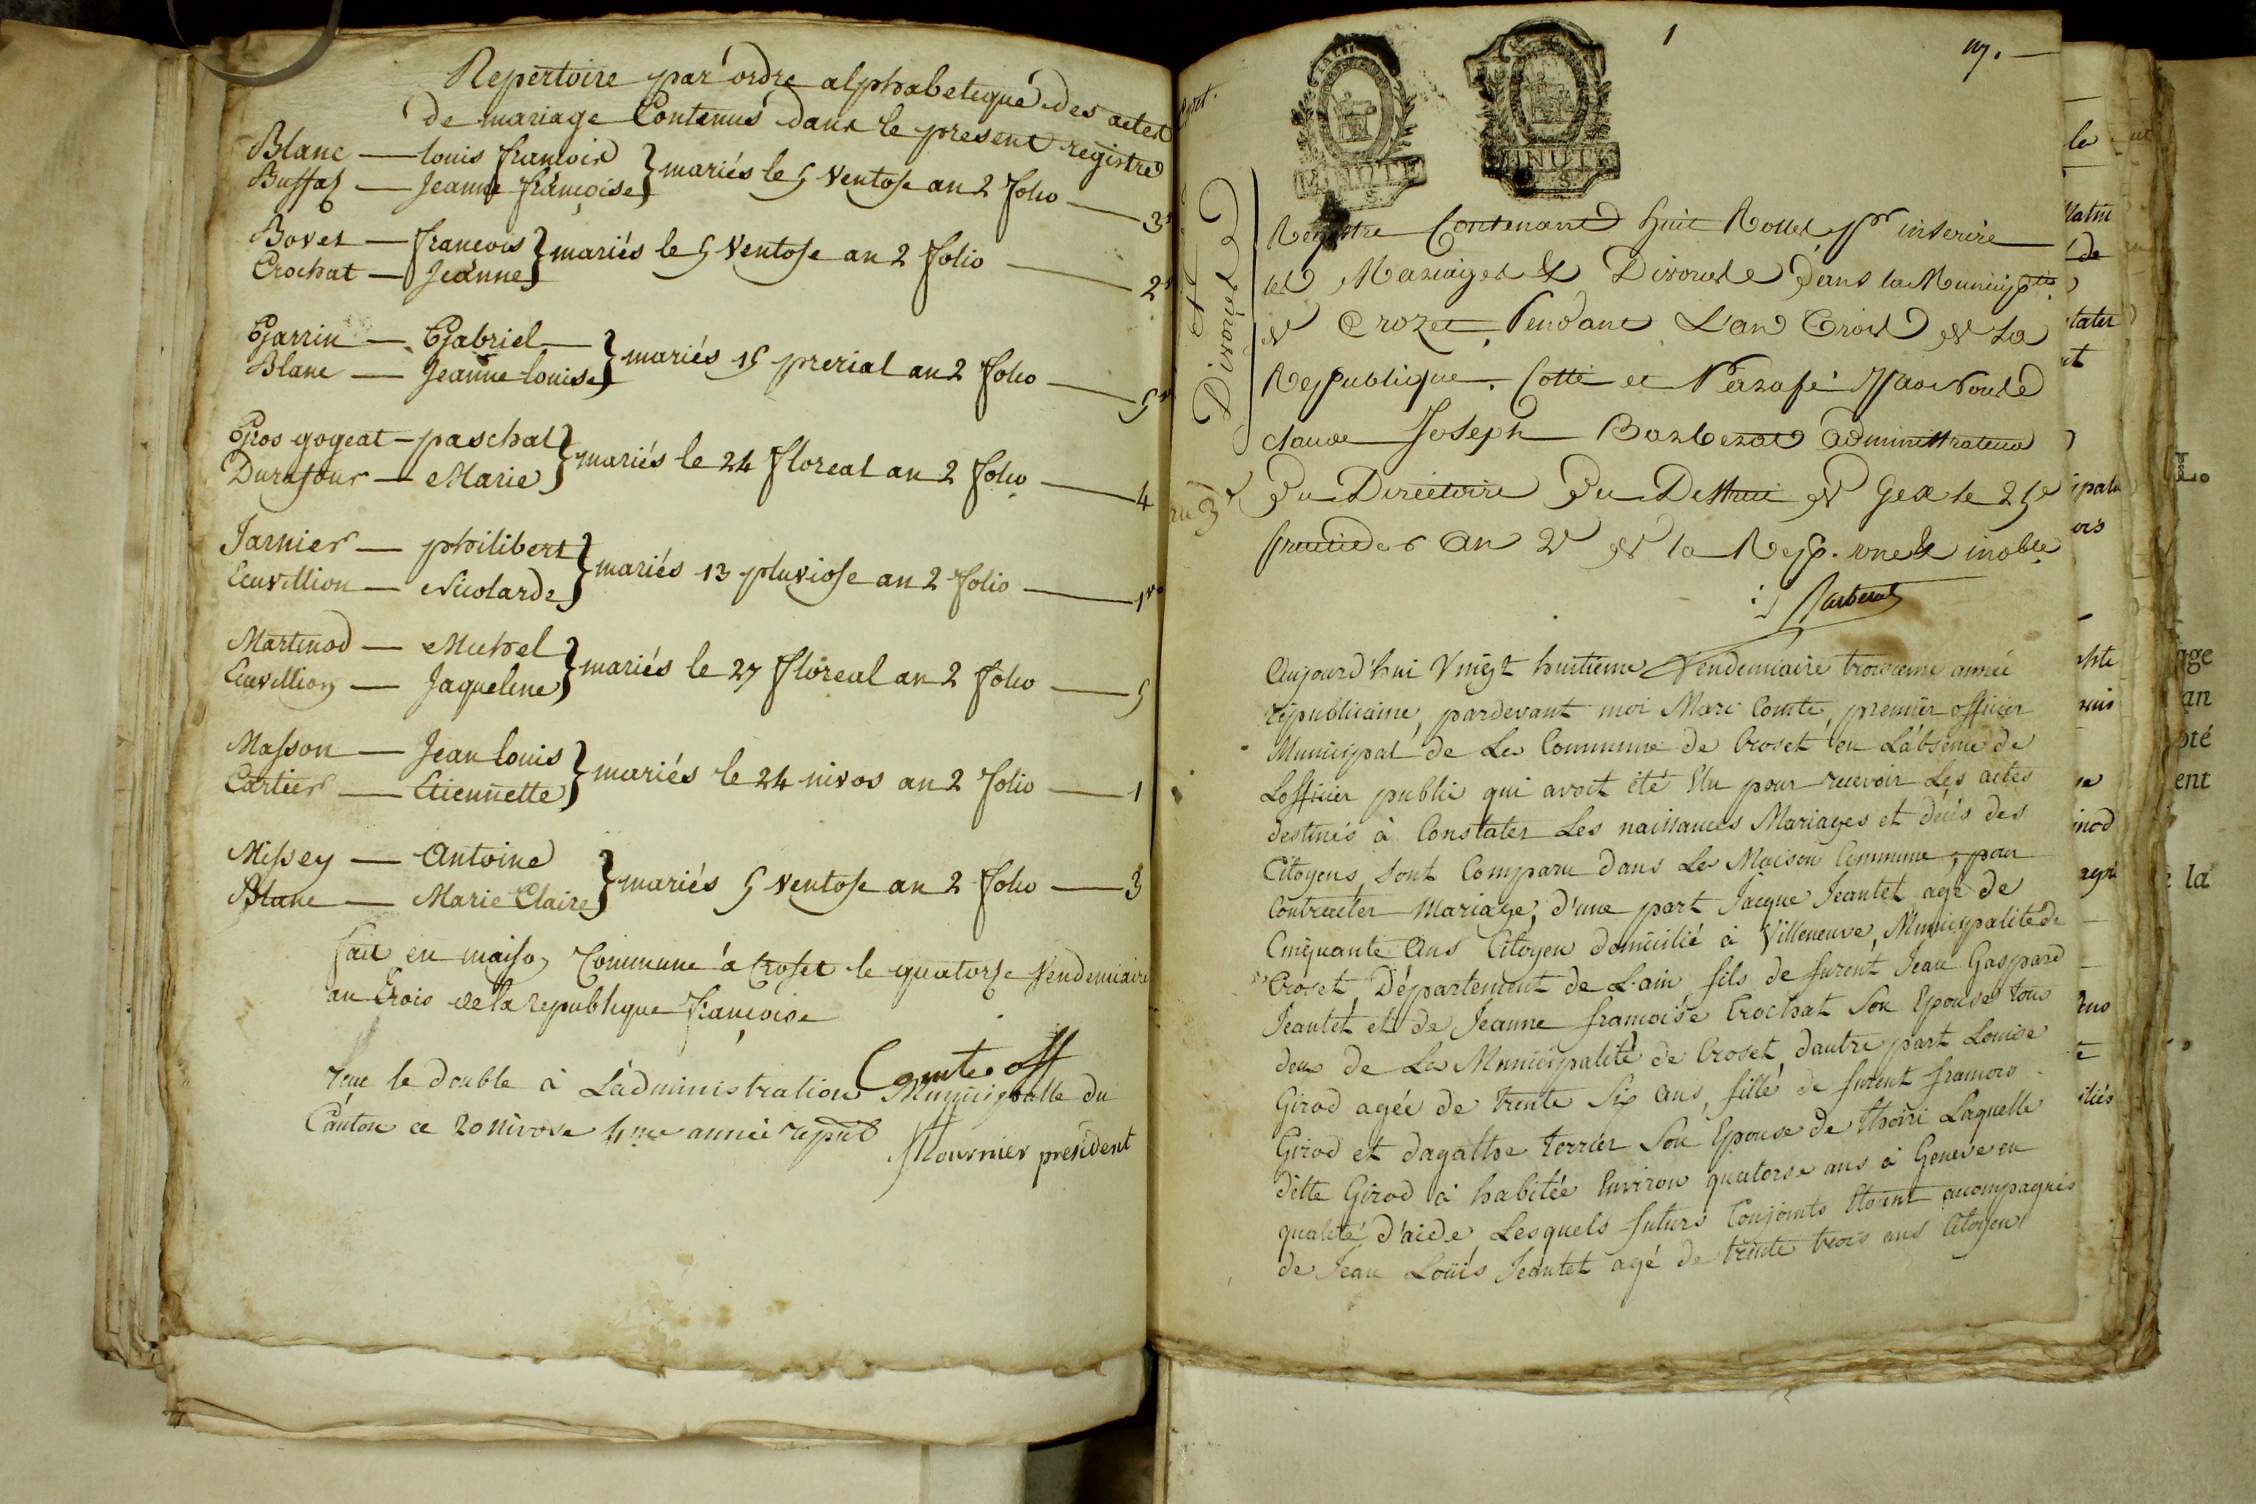 Repertoire par ordre alphabetique des actes
de mariage Contenus dans le present registre
Blanc — louis francois } mariés le 5 Ventose an 2 folio — 3
Buffaz — Jeanne françoise
Bovet — francois } mariés le 5 Ventose an 2 folio — 2
Crochat — Jeanne
Garrin — Gabriel — } mariés 15 prerial an 2 folio — 5
Blanc — Jeanne louise
Gros gogeat — paschal } mariés le 24 floreal an 2 folio — 4
Durafour — Marie
Jarnier — philibert } mariés 13 pluviose an 2 folio — 1vo
Ecuvillion — Nicolarde
Martinod — Michel } mariés le 27 floreal an 2 folio — 5
Ecuvillion — Jaqueline
Masson — Jean louis } mariés le 24 nivos an 2 folio — 1
Cartier — Etiennette
Missey — Antoine } mariés 5 ventose an 2 folio — 3
Blanc — Marie Claire
fait en maison Commune à Croset le quatorse Vendemiaire
an trois de la republique françoise
Comte off
le double à L'administration Municipalle du
Canton ce 20 nivose 4me année republ
fournier président
1
Divorces
MINUTE
MINUTE
Registre Contenant huit Rolles pr inserire
les Mariages & Divorces dans la Municiptée
de Crozet, Pendant L'an Trois de La
Republique. Cotté et Parafé par nous
claude Joseph Barberat administrateur
du Directoire du District de Gex le 25
fructidor an 2e de la Rep. une & indble
Barberat
Aujourd'hui Vingt huitieme Vendemiaire troisieme année
républicaine, pardevant moi Marc Comte, premier officier
Municipal de La Commune de Croset en L'absence de
Lofficier public qui avoit été Elu pour recevoir Les actes
destinés à Constater Les naissances Mariages et décés des
Citoyens, sont Comparu dans La Maison Commune, pour
Contracter Mariage, d'une part Jacque Jeantet agé de
Cinquante Ans Citoyen domicilié à Villeneuve, Municipalité de
Croset, Département de L'ain fils de furent Jean Gaspard
Jeantet et de Jeanne francoise Crochat Son Epouse tous
deux de La Municipalité de Croset, dautre part Louise
Girod agée de trente Six ans, fille de furent francois
Girod et dagathe terrier Son Epouse de thoiri Laquelle
ditte Girod à habitée Environ quatorse ans à Geneve en
qualité d'aide Lesquels futurs Conjoints Etoient acompagnés
de Jean Louis Jeantet agé de trente trois ans Citoyen